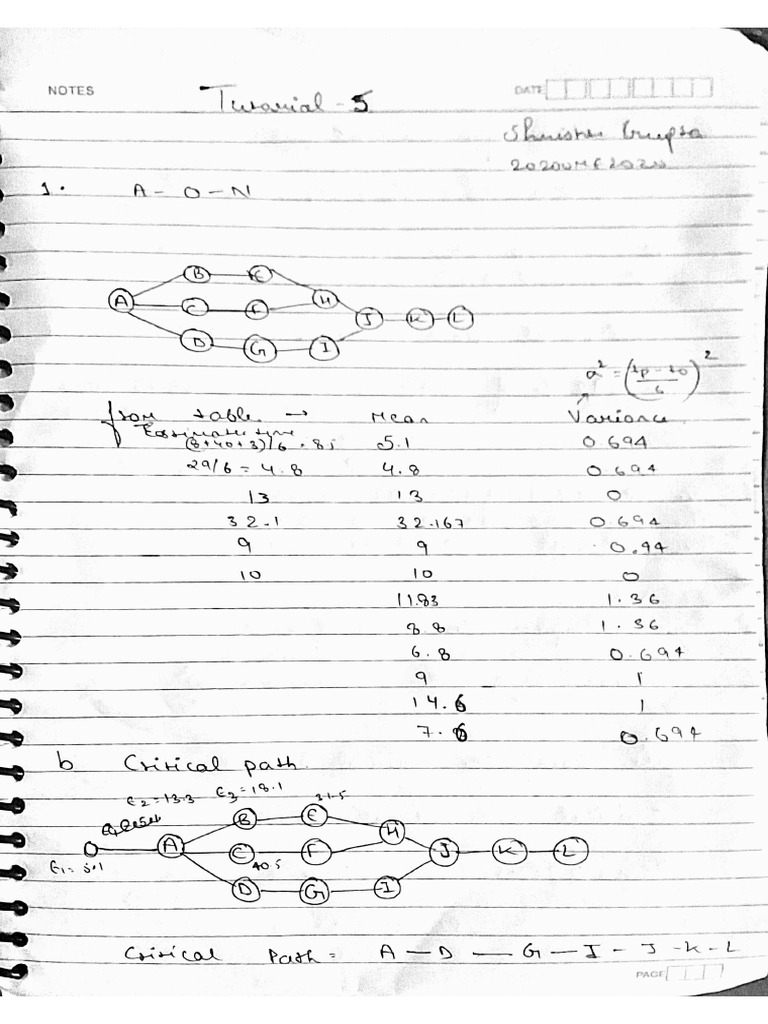 NOTES
Tutorial - 5
DATE
1. A - O - N
B E
A C F H
J K L
D G I
a² = (tp - to / 6)²
from table → Mean Variance
Estimate time
(8+40+3)/6 = 8.5 5.1 0.694
29/6 = 4.8 4.8 0.694
13 13 0
32.1 32.167 0.694
9 9 0.44
10 10 0
11.83 1.36
8.8 1.36
6.8 0.694
9 1
14.6 1
7.6 0.694
b Critical path
E2 = 13.3 E3 = 18.1 31.5
B E
A C F H J K L
E1 = 5.1 40.5
D G I
Critical Path = A - D - G - I - J - K - L
PAGE